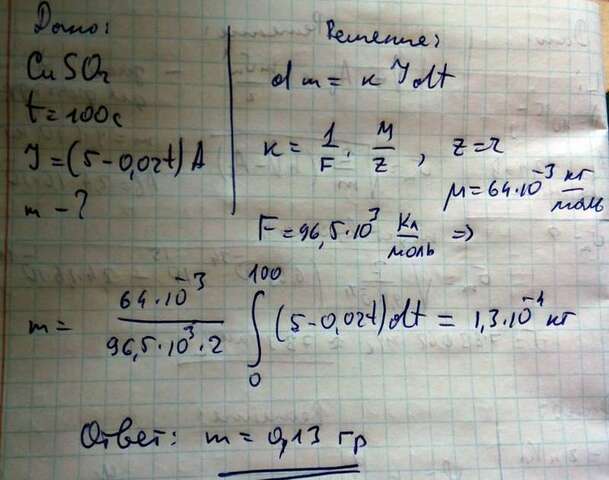 Дано:
CuSO₂
t=100с
J=(5-0,02t)A
m-?
Решение:
dm = к J dt
к = 1/F · M/z, z=2
μ=64·10⁻³ кг/моль
F=96,5·10³ Кл/моль ⇒
m = 64·10⁻³/96,5·10³·2 ∫₀¹⁰⁰ (5-0,02t)dt = 1,3·10⁻⁴ кг
Ответ: m = 0,13 гр